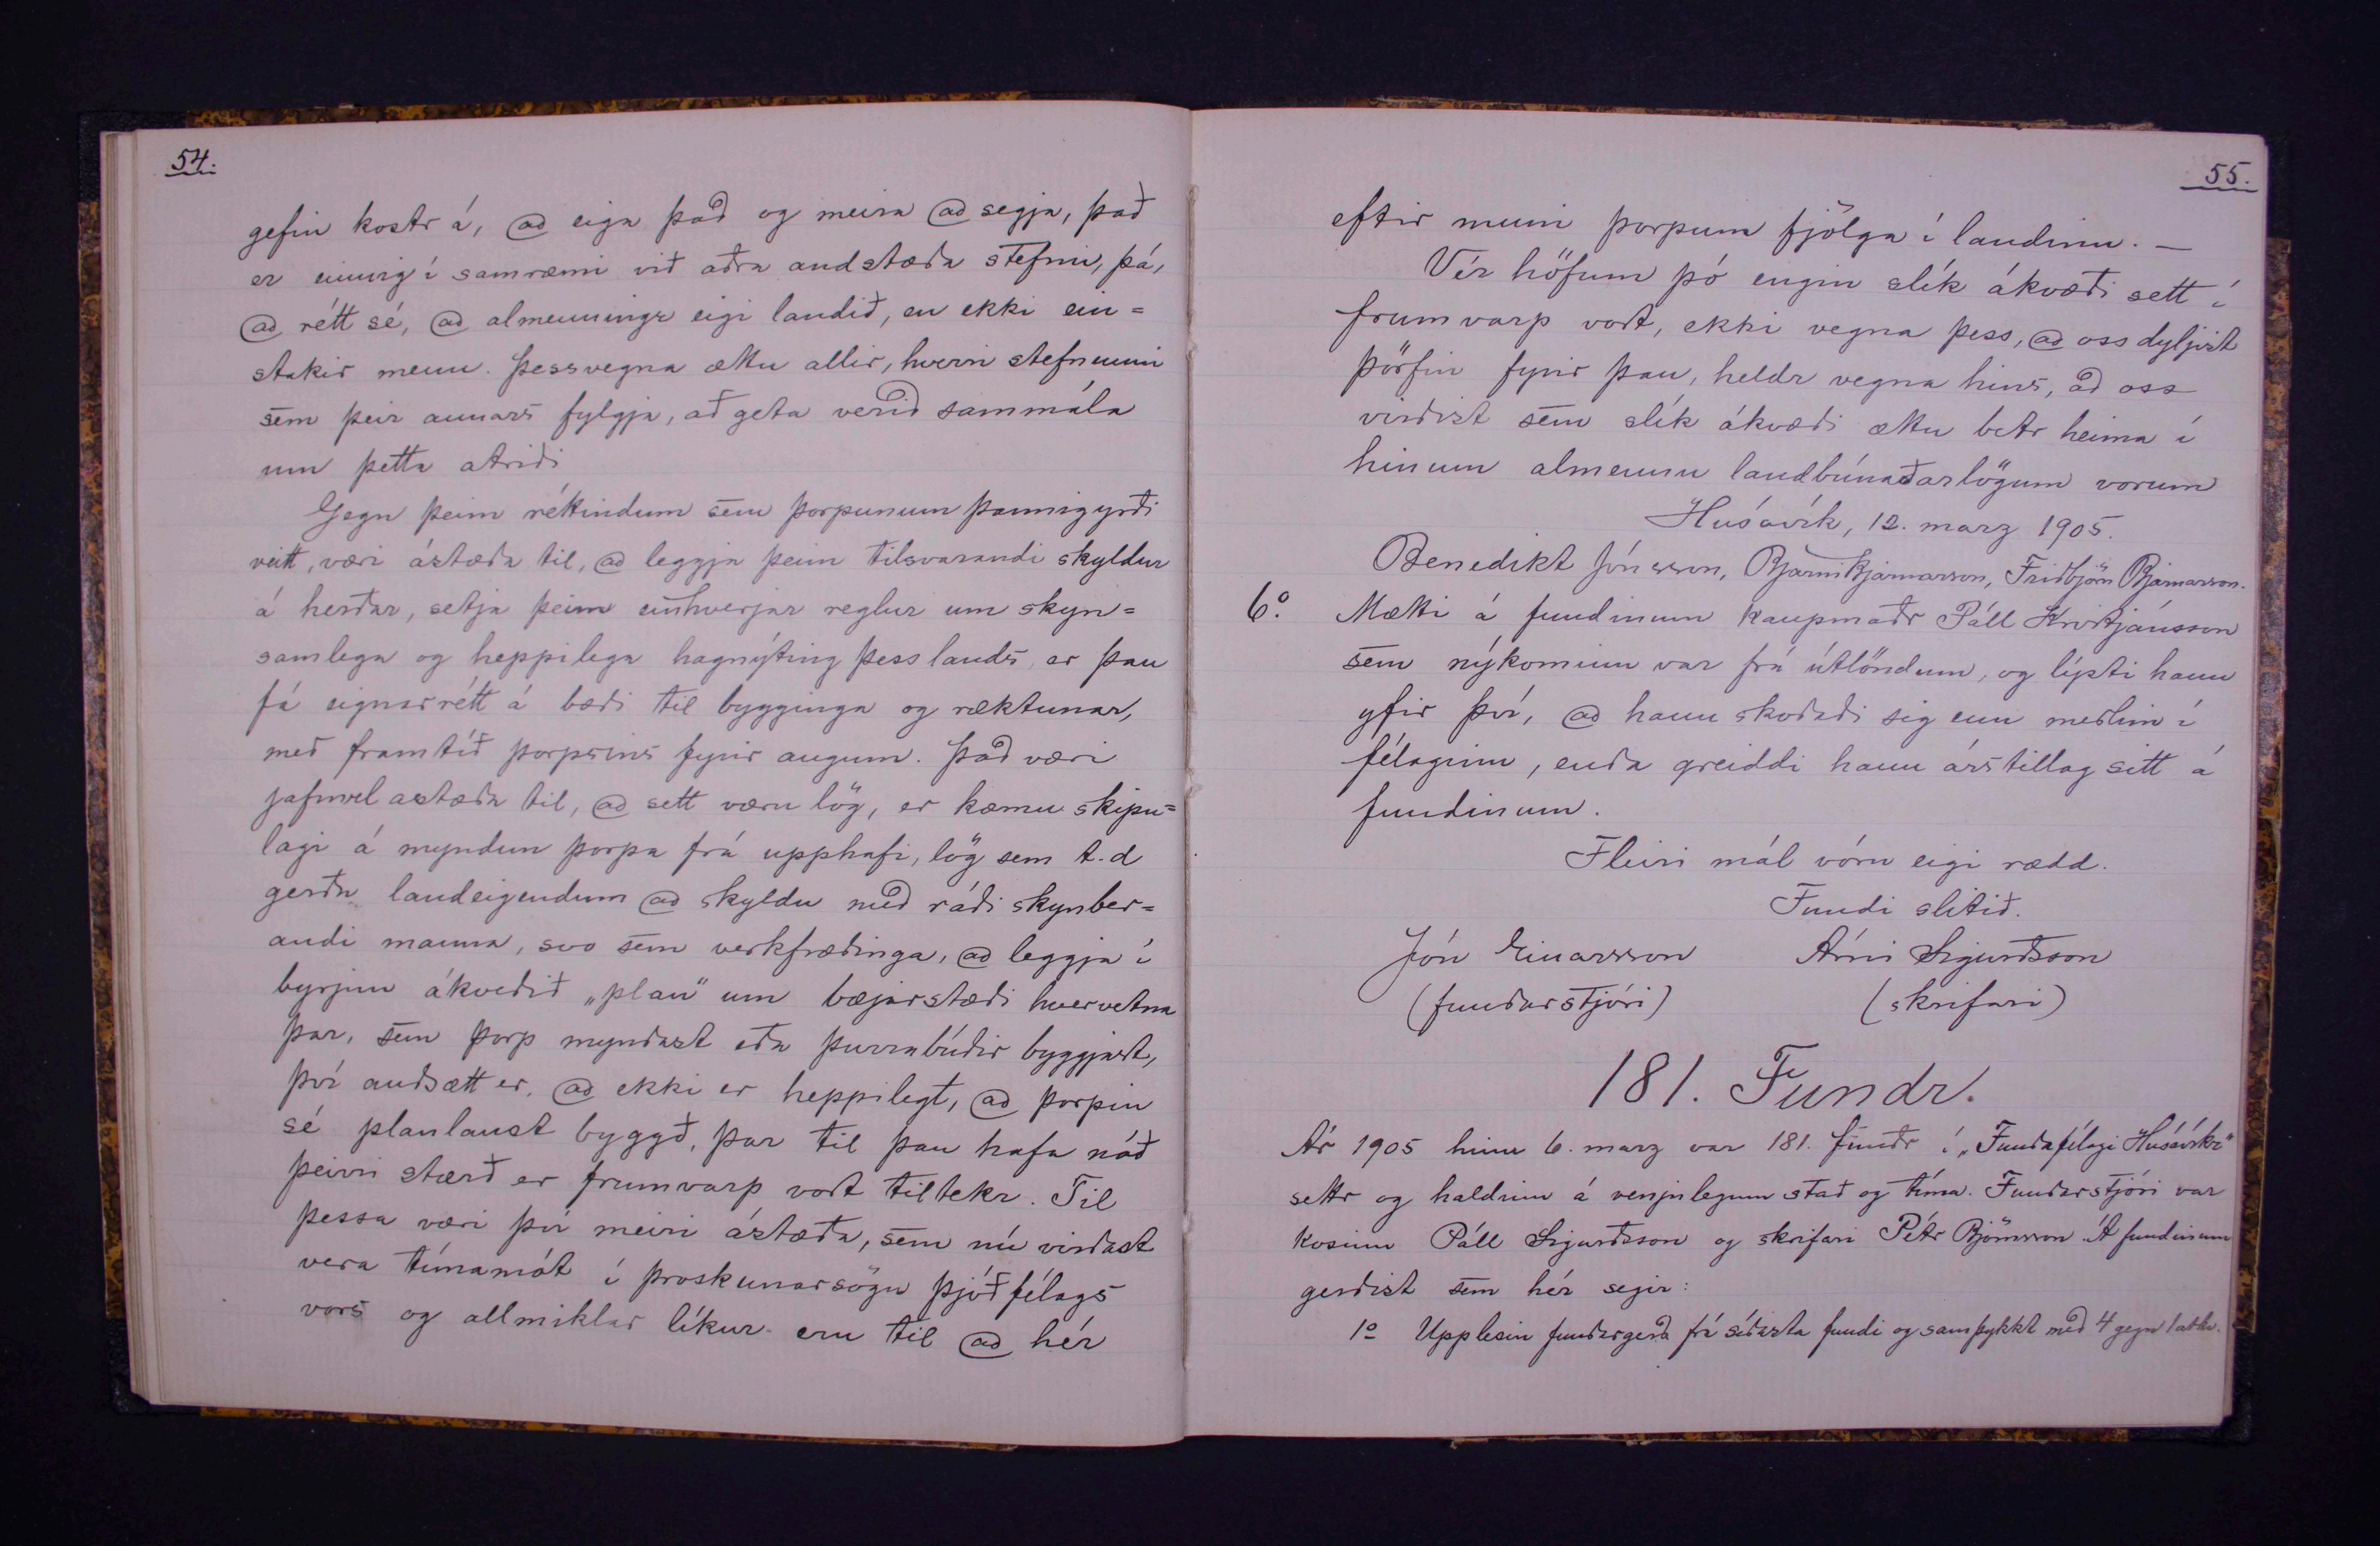 54.
gefin kostr á, að eiga það og meira að segja, það
er einnig í samræmi við aðra andstæða stefnu, þá,
að rétt sé, að almenningr eigi landið, en ekki ein=
stakir menn. Þessvegna ættu allir, hverri stefnunni
sem þeir annars fylgja, að geta verið sammála
um þetta atriði
Gegn þeim réttindum sem þorpunum þannig yrði
veitt, væri ástæða til, að leggja þeim tilsvarandi skyldur
á herðar, setja þeim einhverjar reglur um skyn=
samlega og heppilega hagnýting þess lands, er þau
fá eignarrétt á bæði til bygginga og ræktunar,
með framtíð þorpsins fyrir augum. Það væri
jafnvel astæða til, að sett væru lög, er kæmu skipu=
lagi á myndun þorpa frá upphafi, lög sem t.d
gerðu landeigendum að skyldu með ráði skynber=
andi manna, svo sem verkfræðinga, að leggja í
byrjun ákveðið „plan" um bæjarstæði hvervetna
þar, sem þorp myndast eða þurrabúðir byggjast,
því auðsætt er, að ekki er heppilegt, að þorpin
sé planlaust byggð, þar til þau hafa náð
þeirri stærð er frumvarp vort tiltekr. Til
þessa væri því meiri ástæða, sem nú virðast
vera tímamót í þroskunarsögu þjóðfélags
vors og allmiklar líkur eru til að hér
55.
eftir muni þorpum fjölga í landinu. —
Vér höfum þó engin slík ákvæði sett í
frumvarp vort, ekki vegna þess, að oss dyljist
þörfin fyrir þau, heldr vegna hins, að oss
virðist sem slík ákvæði ættu betr heima í
hinum almennu landbúnaðarlögum vorum
Húsavík, 12. marz 1905.
Benedikt Jónsson, Bjarni Bjarnarson, Friðbjörn Bjarnarson.
6.º Mætti á fundinum kaupmaðr Páll Kristjánsson
sem nýkominn var frá útlöndum, og lýsti hann
yfir því, að hann skoðaði sig enn meðlim í
félaginu, enda greiddi hann árstillag sitt á
fundinum.
Fleiri mál vóru eigi rædd.
Fundi slitið.
Jón Einarsson Árni Sigurðsson
(fundarstjóri) (skrifari)
181. Fundr.
Ár 1905 hinn 6. marz var 181. fundr í „Fundafélagi Húsavíkr"
settr og haldinn á venjulegum stað og tíma. Fundarstjóri var
kosinn Páll Sigurðsson og skrifari Pétr Björnsson. Á fundinum
gerðist sem hér segir:
1º Upplesin fundargerð frá síðasta fundi og samþykkt með 4 gegn 1 atkv.